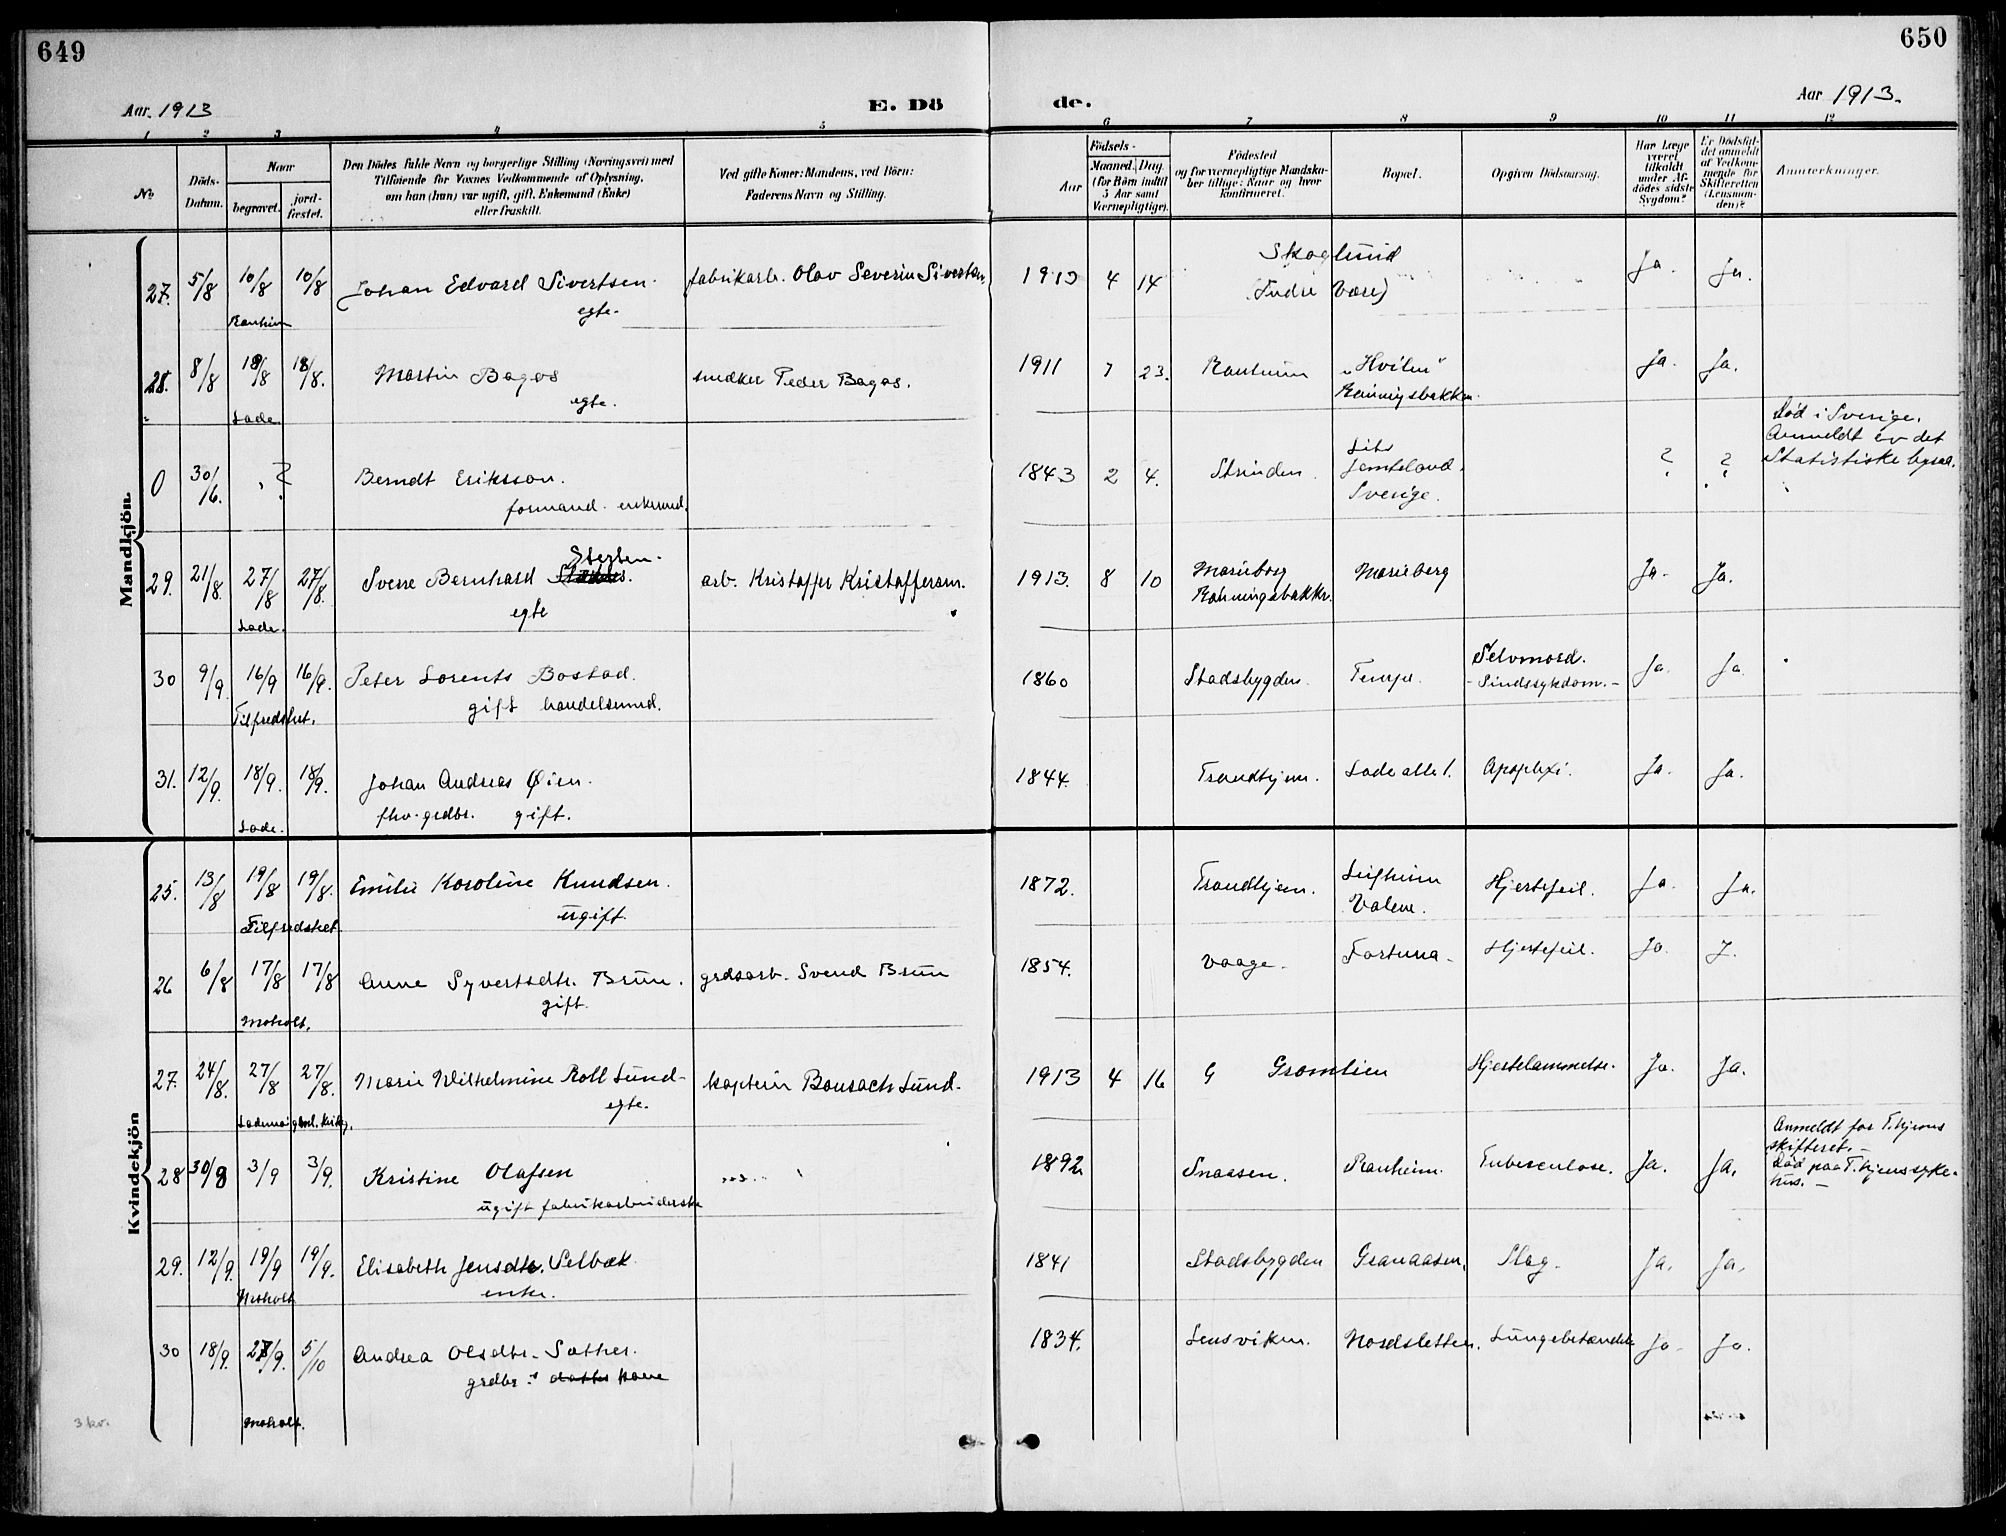 649
650
Aar. 1913
E. Dö
de.
Aar 1913.
1 2 3 4 5 6 7 8 9 10 11 12
No
Döds-Datum.
Naar
begravet.
jord-fæstet.
Den Dödes fulde Navn og borgerlige Stilling (Næringsvei) med
Tilföiende for Voxnes Vedkommende af Oplysning,
om han (hun) var ugift, gift, Enkemand (Enke)
eller fraskilt.
Ved gifte Koner: Mandens, ved Börn:
Faderens Navn og Stilling.
Födsels-
Aar
Maaned. Dag.
(for Börn indtil
5 Aar samt
Værnepligtige).
Födested
og for værnepligtige Mandska-
ber tillige: Naar og hvor
konfirmeret.
Bopæl.
Opgiven Dödsaarsag.
Har Læge
været
tilkaldt
under Af-
dödes sidste
Sygdom?
Er Dödsfal-
det anmeldt
af Vedkom-
mende for
Skifteretten
(Lensman-
den)?
Anmerkninger.
Mandkjön.
27. 5/8 10/8 10/8 Johan Edvard Sivertsen. fabrikarb. Olav Severin Sivertsen. 1913 4 14 Skoglund Ja. Ja.
Ranheim egte. (Indre Være)
28. 8/8 18/8 18/8. Martin Bagøs smedker Peder Bagøs. 1911 7 23. Ranheim "Hvilen" Ja. Ja.
Lade. egte.
0 30/16. ? Berndt Eriksson. 1843 2 4. Strinden. Lits Jemteland. Sverige. ? ? Død i Sverige.
formand. enkemd. Anmeldt av det
Statistiske bysaa.
29. 21/8. 27/8 27/8. Sverre Bernhard Stegten. arb. Kristoffer Kristoffersen. 1913. 8 10 Marieborg Marieberg Ja. Ja.
Lade. egte
30 9/9. 16/9 16/9. Peter Lorents Bostad. 1860 Stadsbygden. Tempe. Selvmord. Ja. Ja.
Tilfredshet. gift handelsmd. - Sindssykdom. -
31. 12/9. 18/9. 18/9. Johan Andreas Øien. 1844. Trondhjem. Lade allé 1. Apoplexi. Ja. Ja.
Lade. fhv. grdbr. gift.
Kvindekjön
25. 13/8 19/8 19/8. Emilie Karoline Knudsen. 1872. Trondhjem. Leifheim Hjertefeil. Ja. Ja.
Tilfredshet ugift. Valene.
26 6/8 17/8 17/8 Anne Syvertsdtr. Brun. grdsarb. Svend Brun 1854. Vaage. Fortuna. Hjertefeil. Ja. J.
Moholt. gift.
27. 24/8. 27/8 27/8. Marie Wilhelmine Roll Lund kaptein Bonsach Lund. 1913 4 16 G Gramlien Hjertelammelse. Ja. Ja.
egte.
28 30/8 3/9 3/9. Kristine Olafsen 1892 Snaasen. Ranheim. Tuberculose. Ja. Ja. Anmeldt for T.hjems
skifteret. -
ugift fabrikarbeiderske Død paa T.hjems syke-
hus. -
29. 12/9. 19/9 19/9. Elisabeth Jensdtr. Selbæk 1841 Stadsbygden Granaasen. Slag. Ja. Ja.
Moholt enke.
30 18/9. 28/9. 5/10 Andrea Olsdtr. Sæther. 1834. Lensviken. Nordsletten. Lungebetændelse Ja. Ja.
grdbr. datter kone
Moholt.
3 kv.